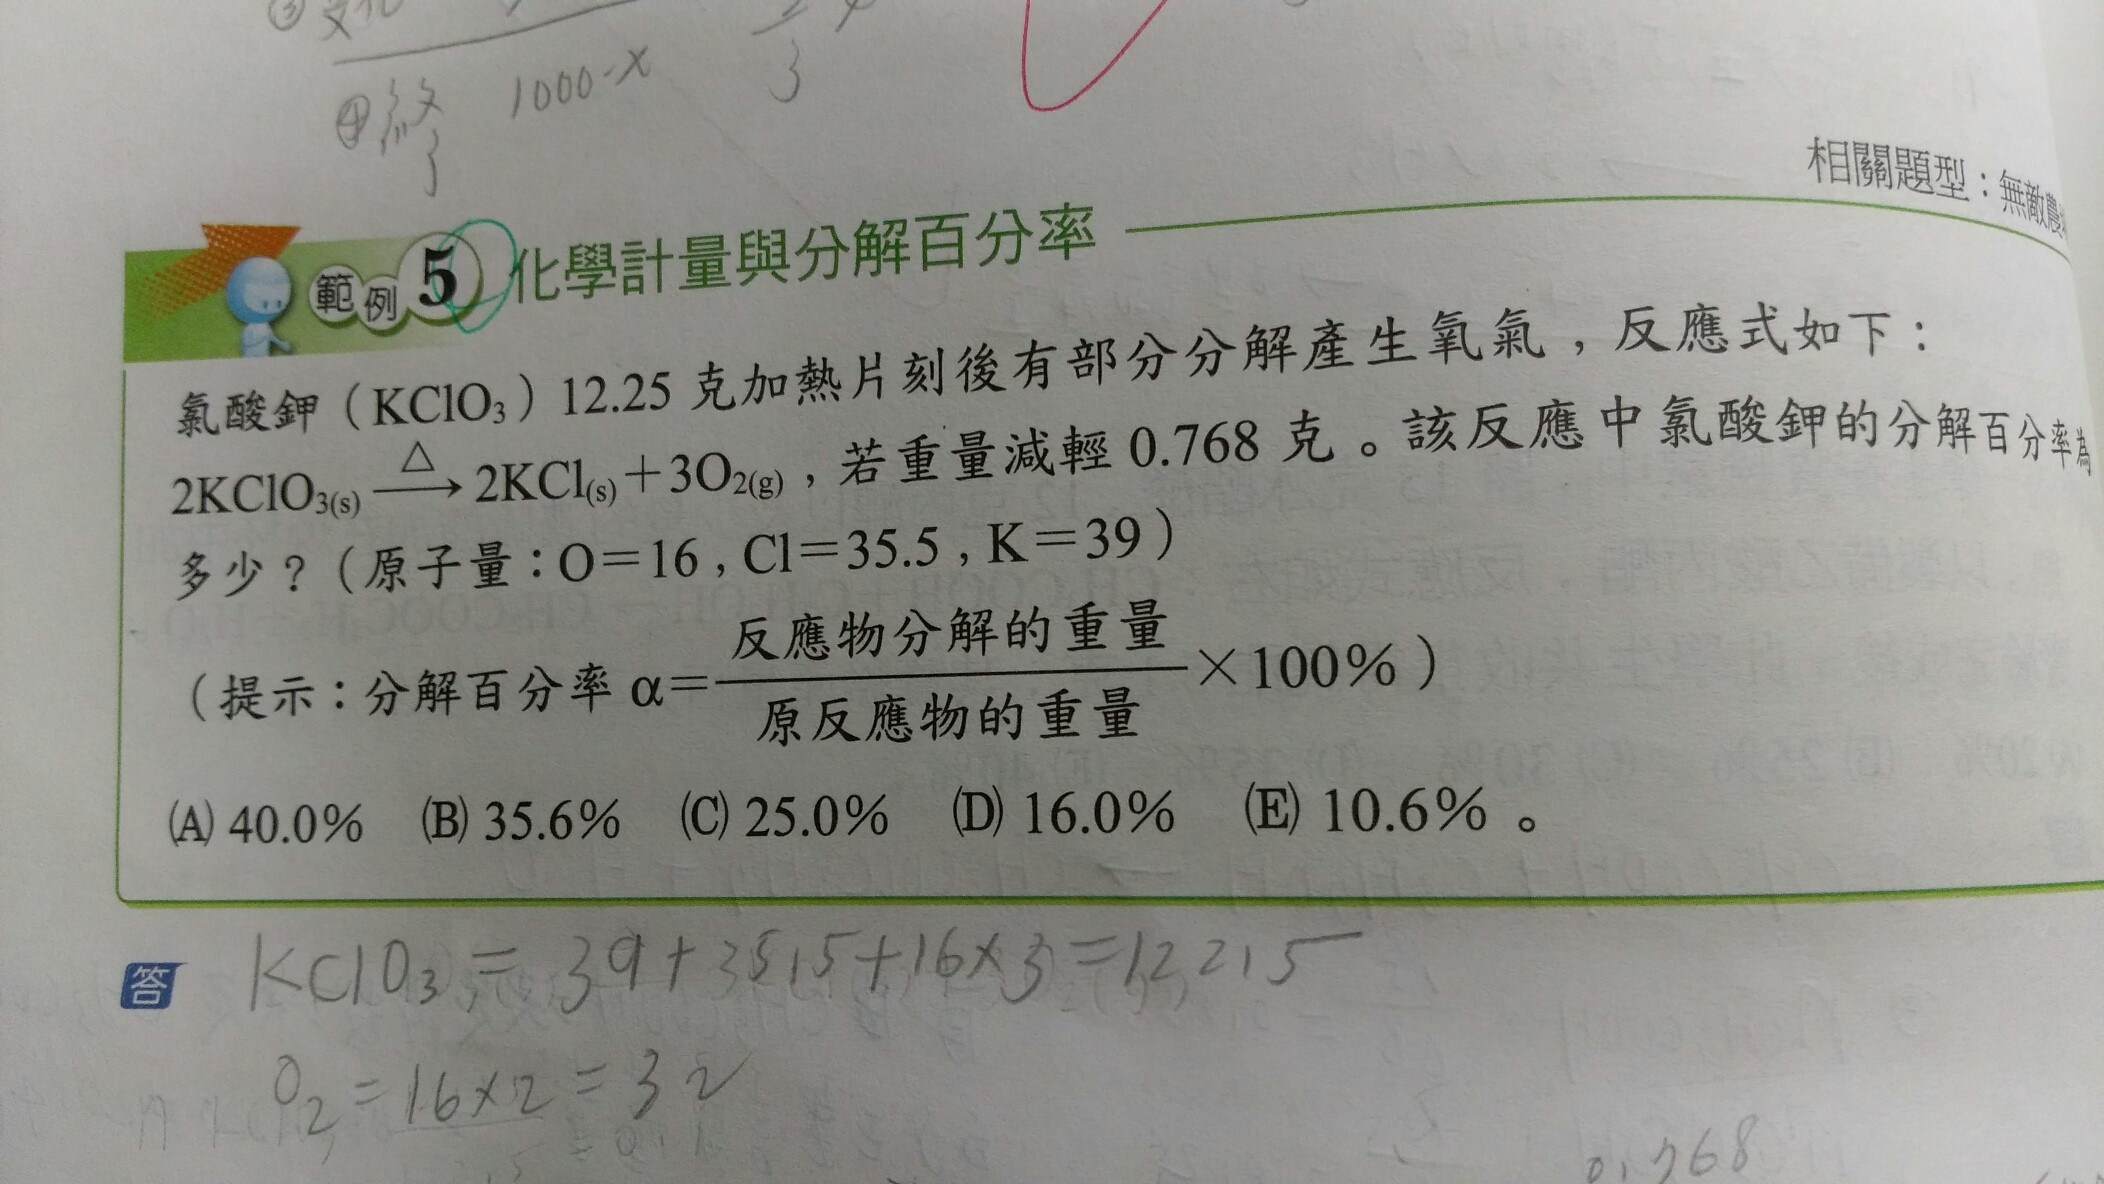 ③
④終 1000-x 3
相關題型：無敵農
範例5 化學計量與分解百分率
氯酸鉀（KClO₃）12.25 克加熱片刻後有部分分解產生氧氣，反應式如下：
2KClO₃(s) △→ 2KCl(s)＋3O₂(g)，若重量減輕 0.768 克。該反應中氯酸鉀的分解百分率為
多少？（原子量：O＝16，Cl＝35.5，K＝39）
（提示：分解百分率 α＝反應物分解的重量/原反應物的重量×100％）
(A) 40.0％ (B) 35.6％ (C) 25.0％ (D) 16.0％ (E) 10.6％。
答 KClO₃ = 39+35.5+16×3=122.5
O₂ = 16×2 = 32
0.768